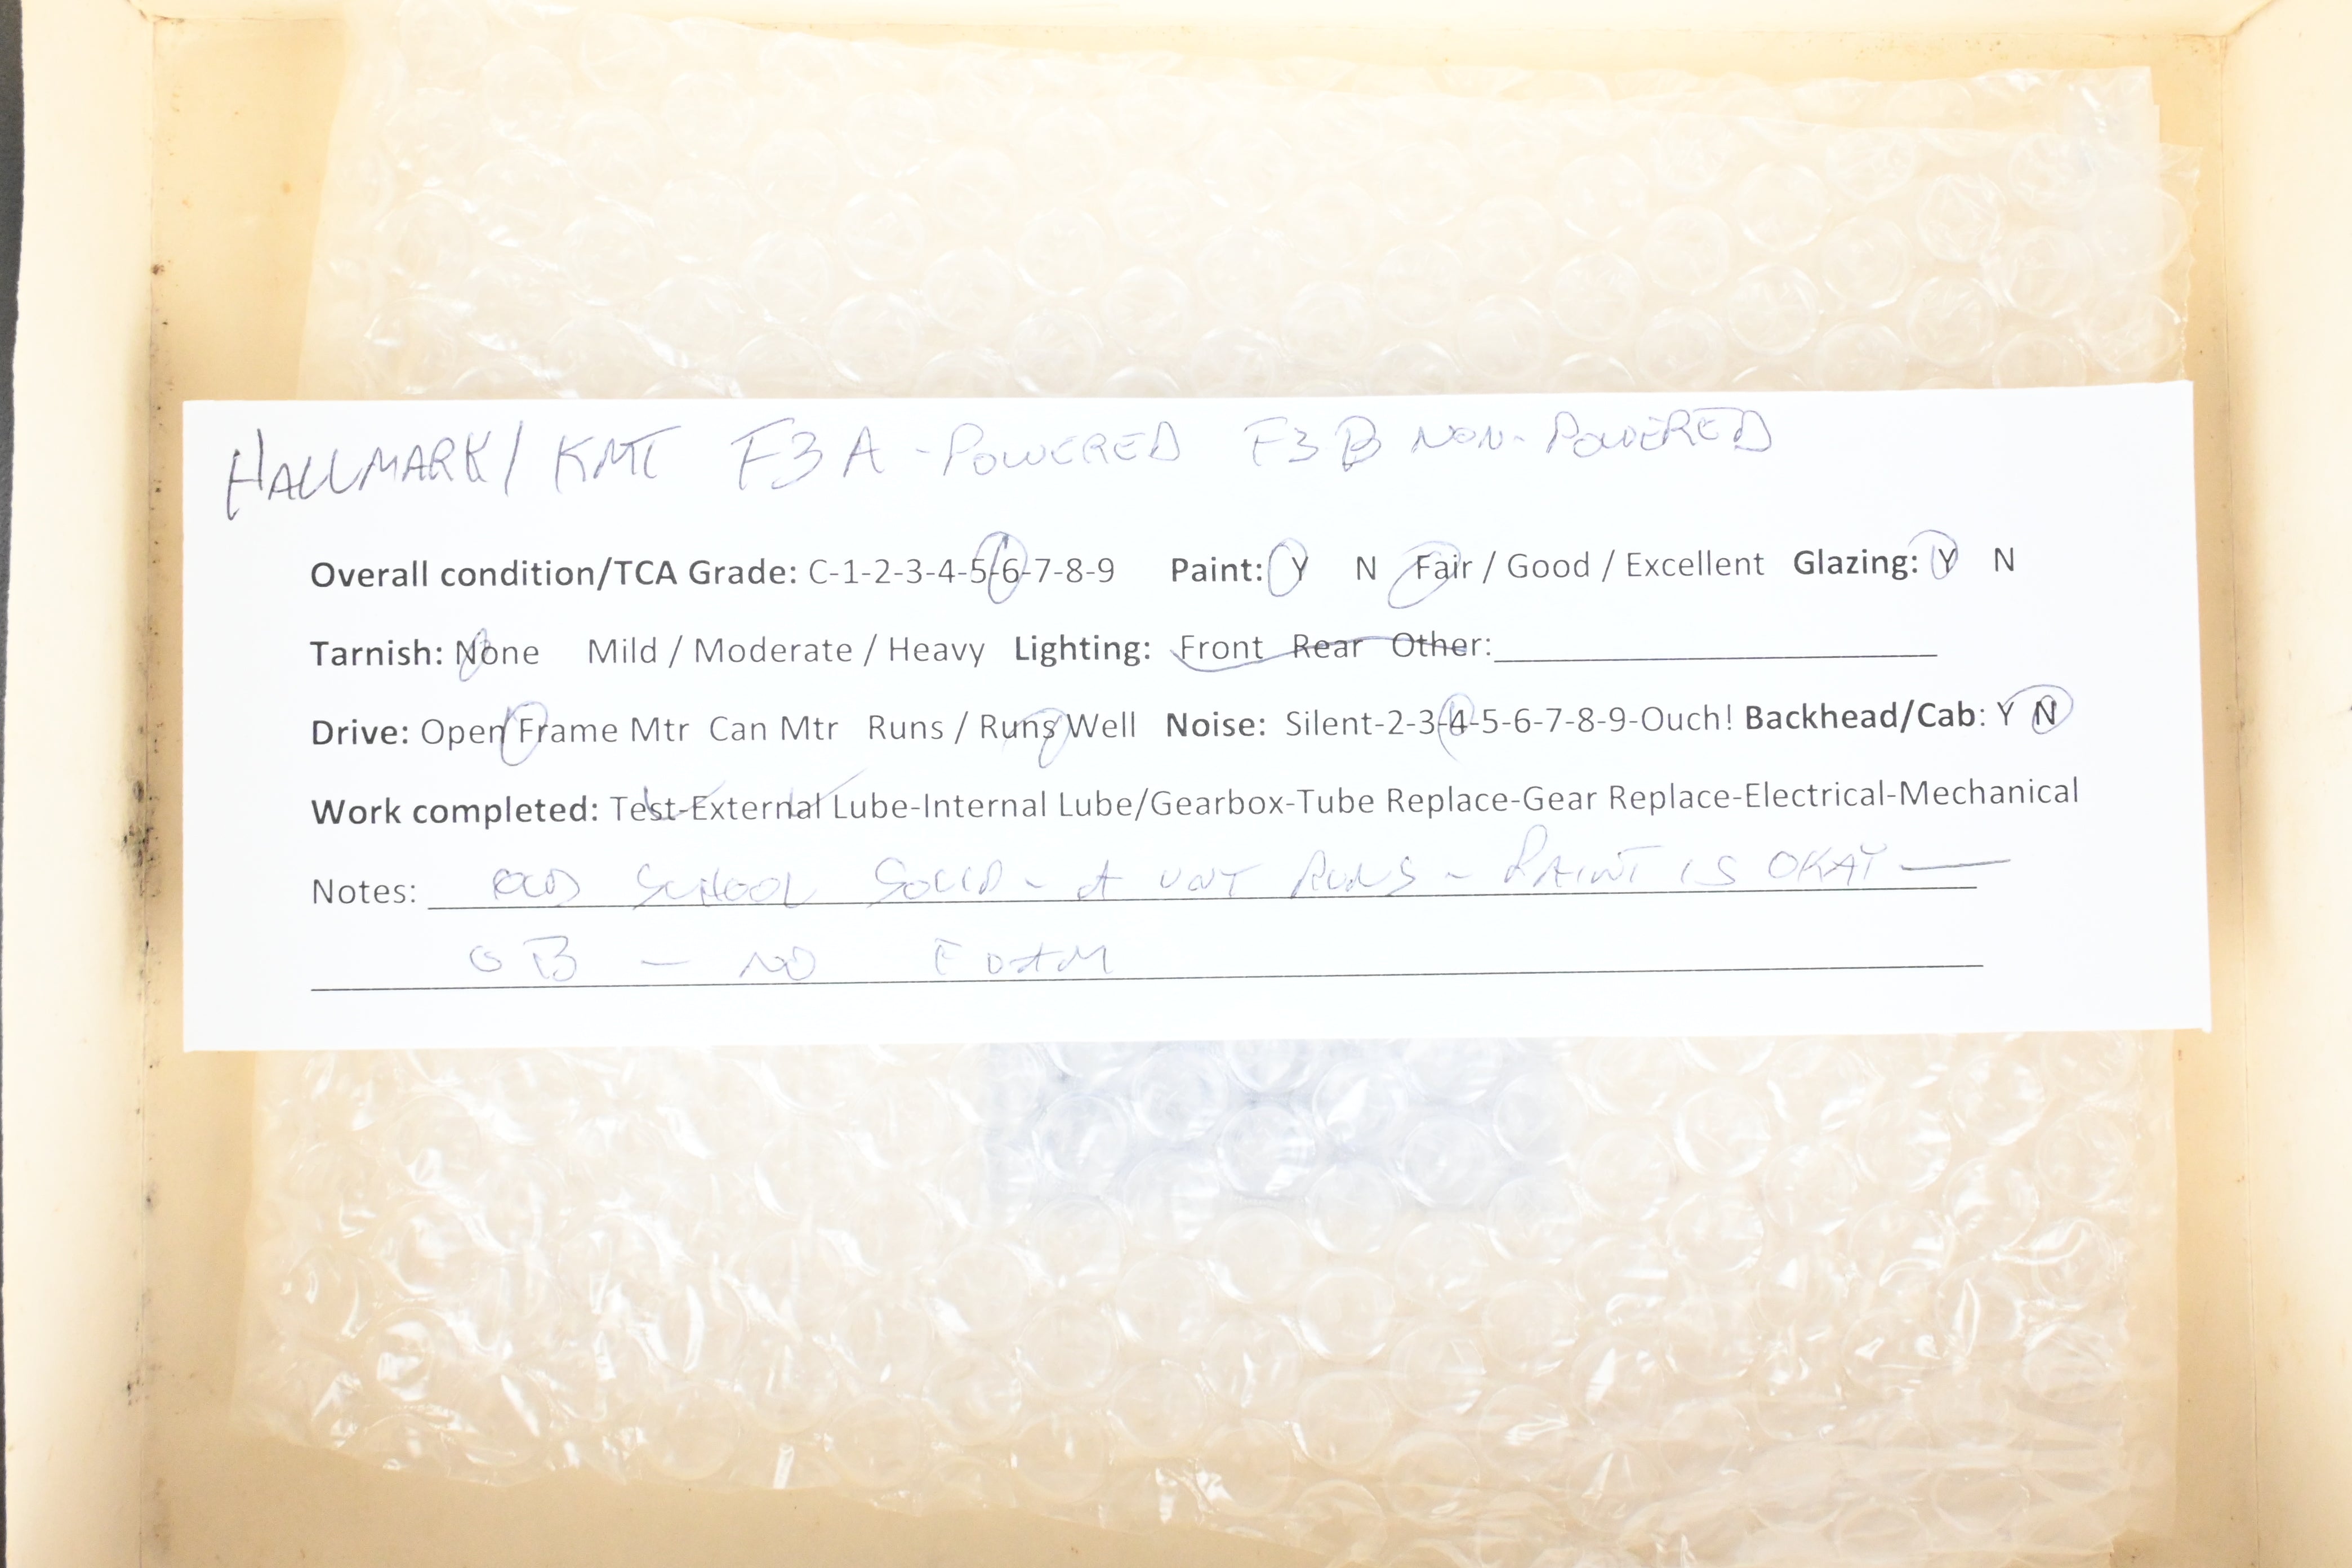 HALLMARK/ KMT F3A-POWERED F3B NON-POWERED
Overall condition/TCA Grade: C-1-2-3-4-5-6-7-8-9 Paint: Y N Fair / Good / Excellent Glazing: Y N
Tarnish: None Mild / Moderate / Heavy Lighting: Front Rear Other:
Drive: Open Frame Mtr Can Mtr Runs / Runs Well Noise: Silent-2-3-4-5-6-7-8-9-Ouch! Backhead/Cab: Y N
Work completed: Test-External Lube-Internal Lube/Gearbox-Tube Replace-Gear Replace-Electrical-Mechanical
Notes: OLD SCHOOL SOLID - A UNIT RUNS - PAINT IS OKAY —
OB — NO FOAM